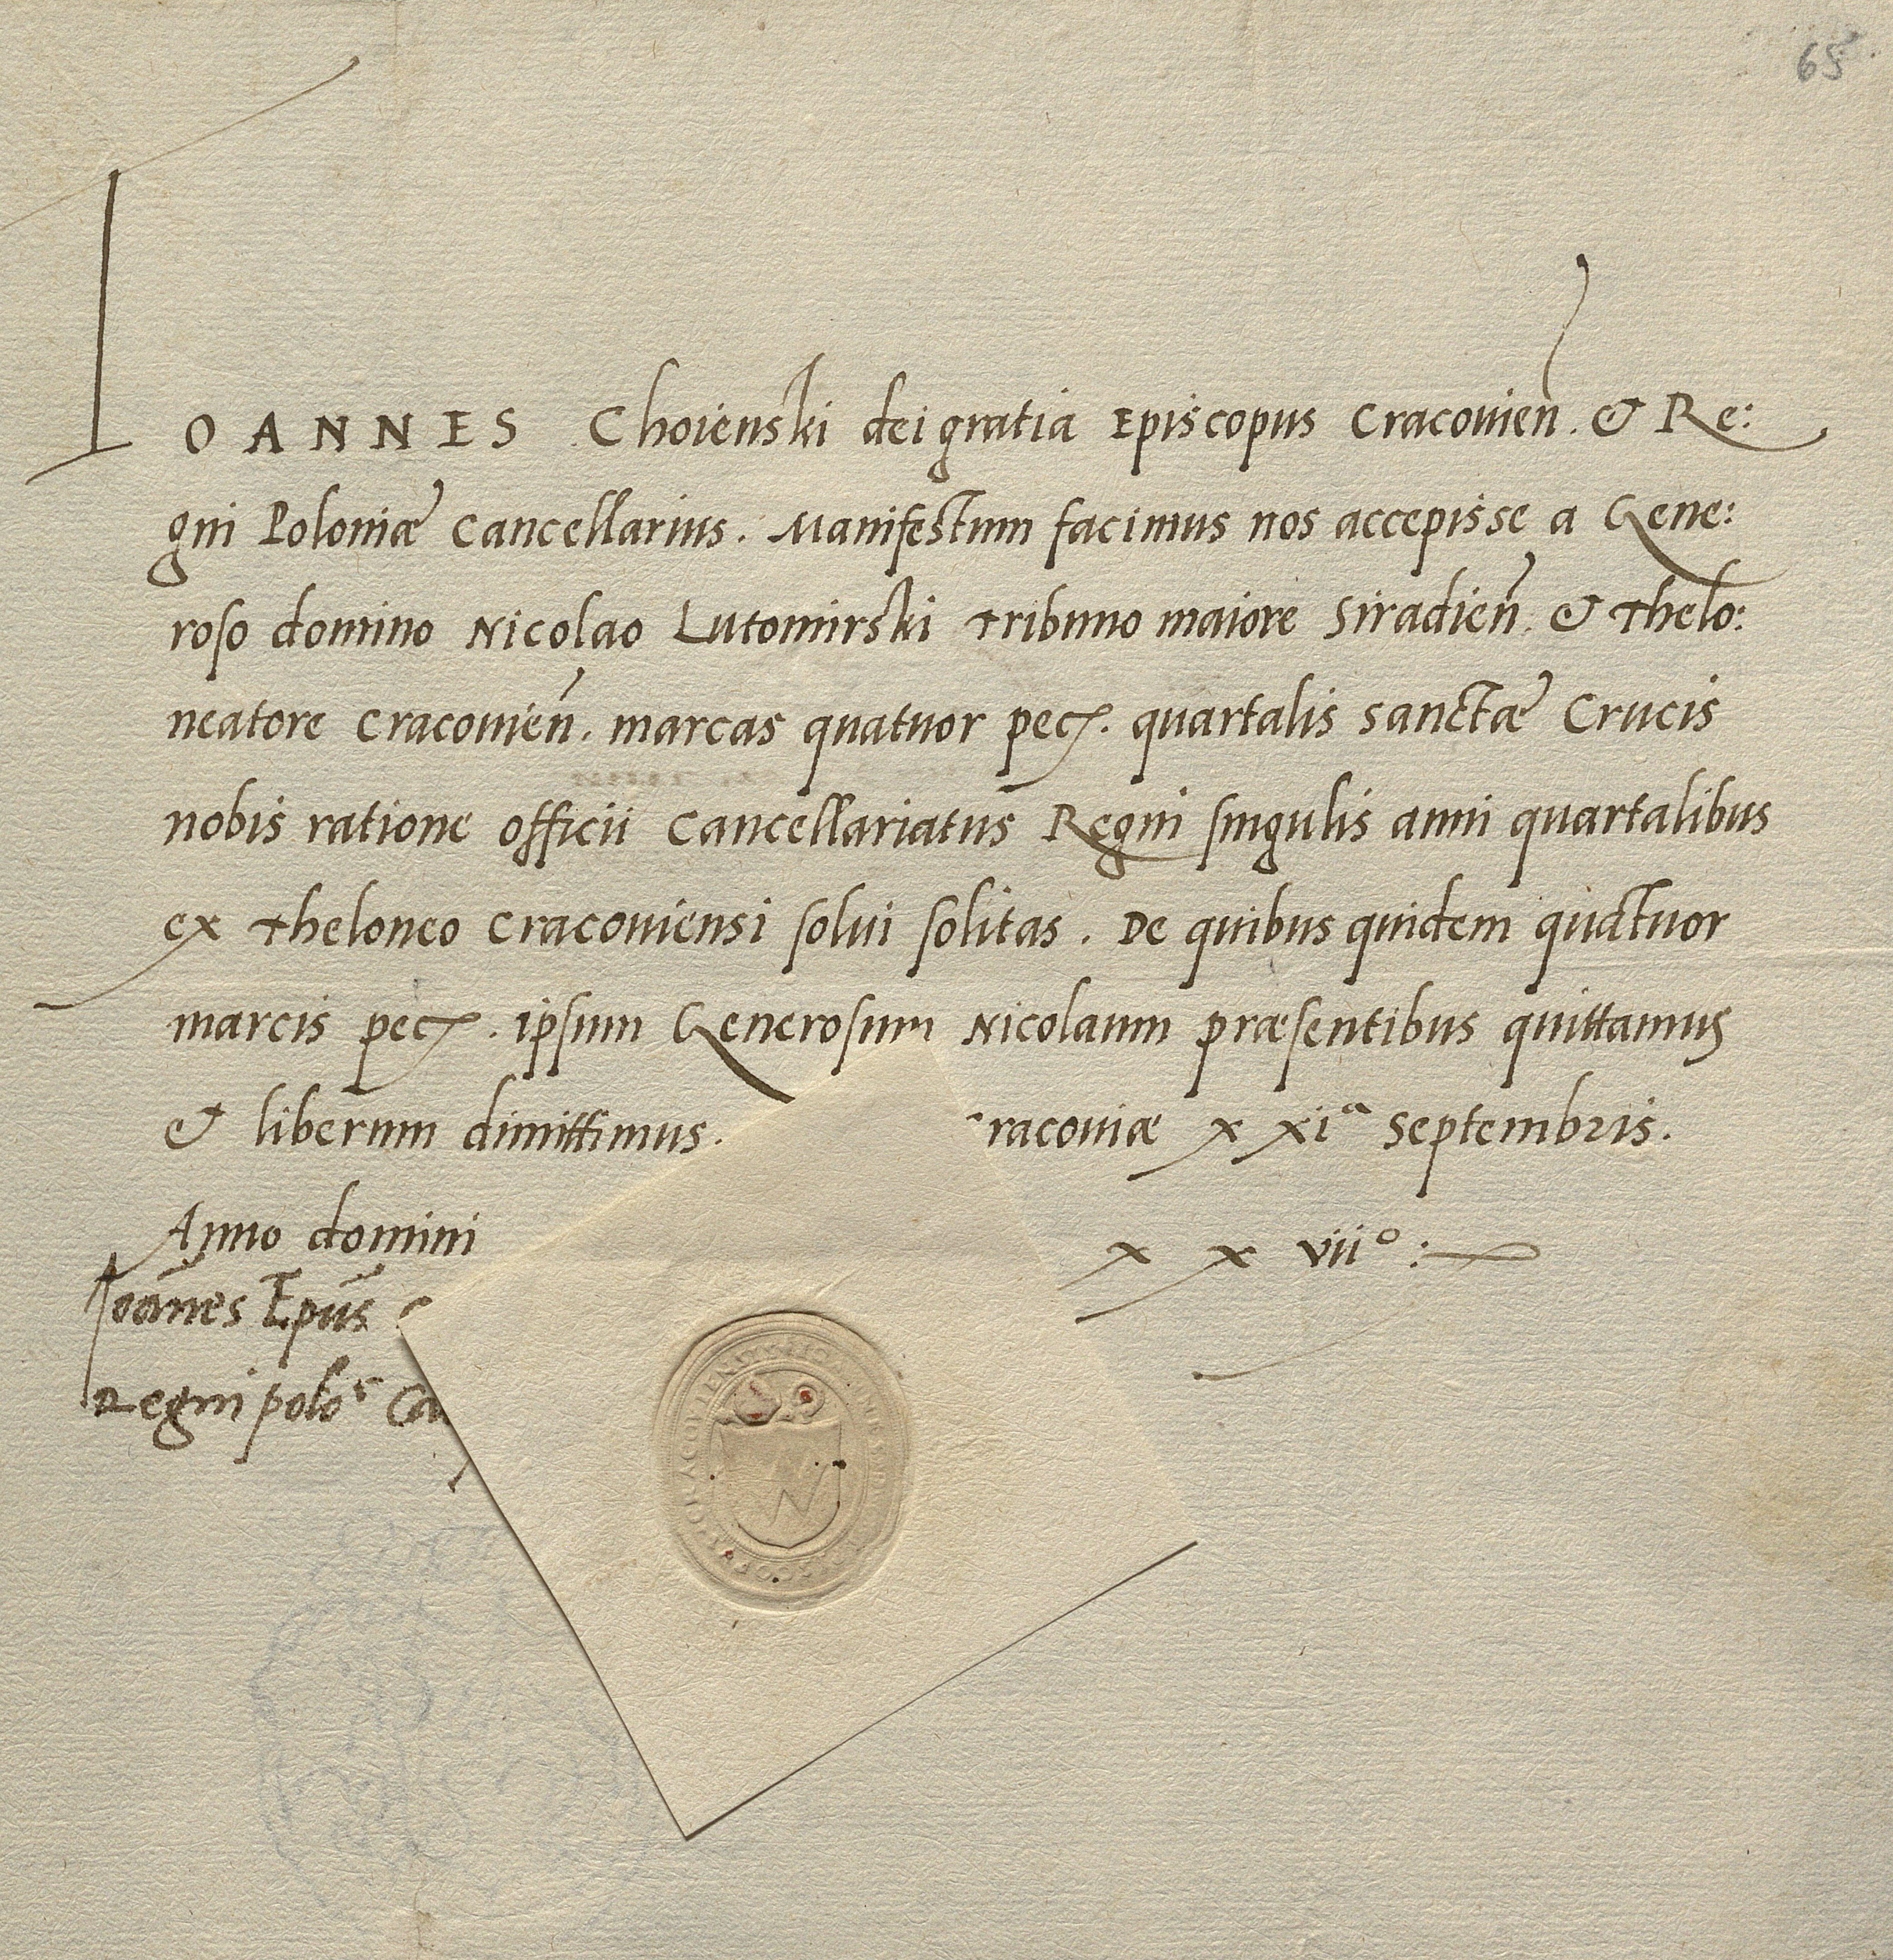 65
IOANNES Choienski dei gratia Episcopus Cracouien̄. & Re:
gni Poloniæ Cancellarius. Manifestum facimus nos accepisse a Gene:
roso domino Nicolao Lutomirski Tribuno maiore Siradien̄. & Thelo:
neatore Cracouien̄. marcas quatuor pec. quartalis sanctæ Crucis
nobis ratione officii Cancellariatus Regni singulis anni quartalibus
ex Theloneo Cracouiensi solui solitas. De quibus quidem quatuor
marcis pec. ipsum Generosum Nicolaum præsentibus quittamus
& liberum dimittimus. racouiæ xxiᵃ Septembris.
Anno domini x x viiº:
Ioān̄es Ep̄us
Regni polo Ca